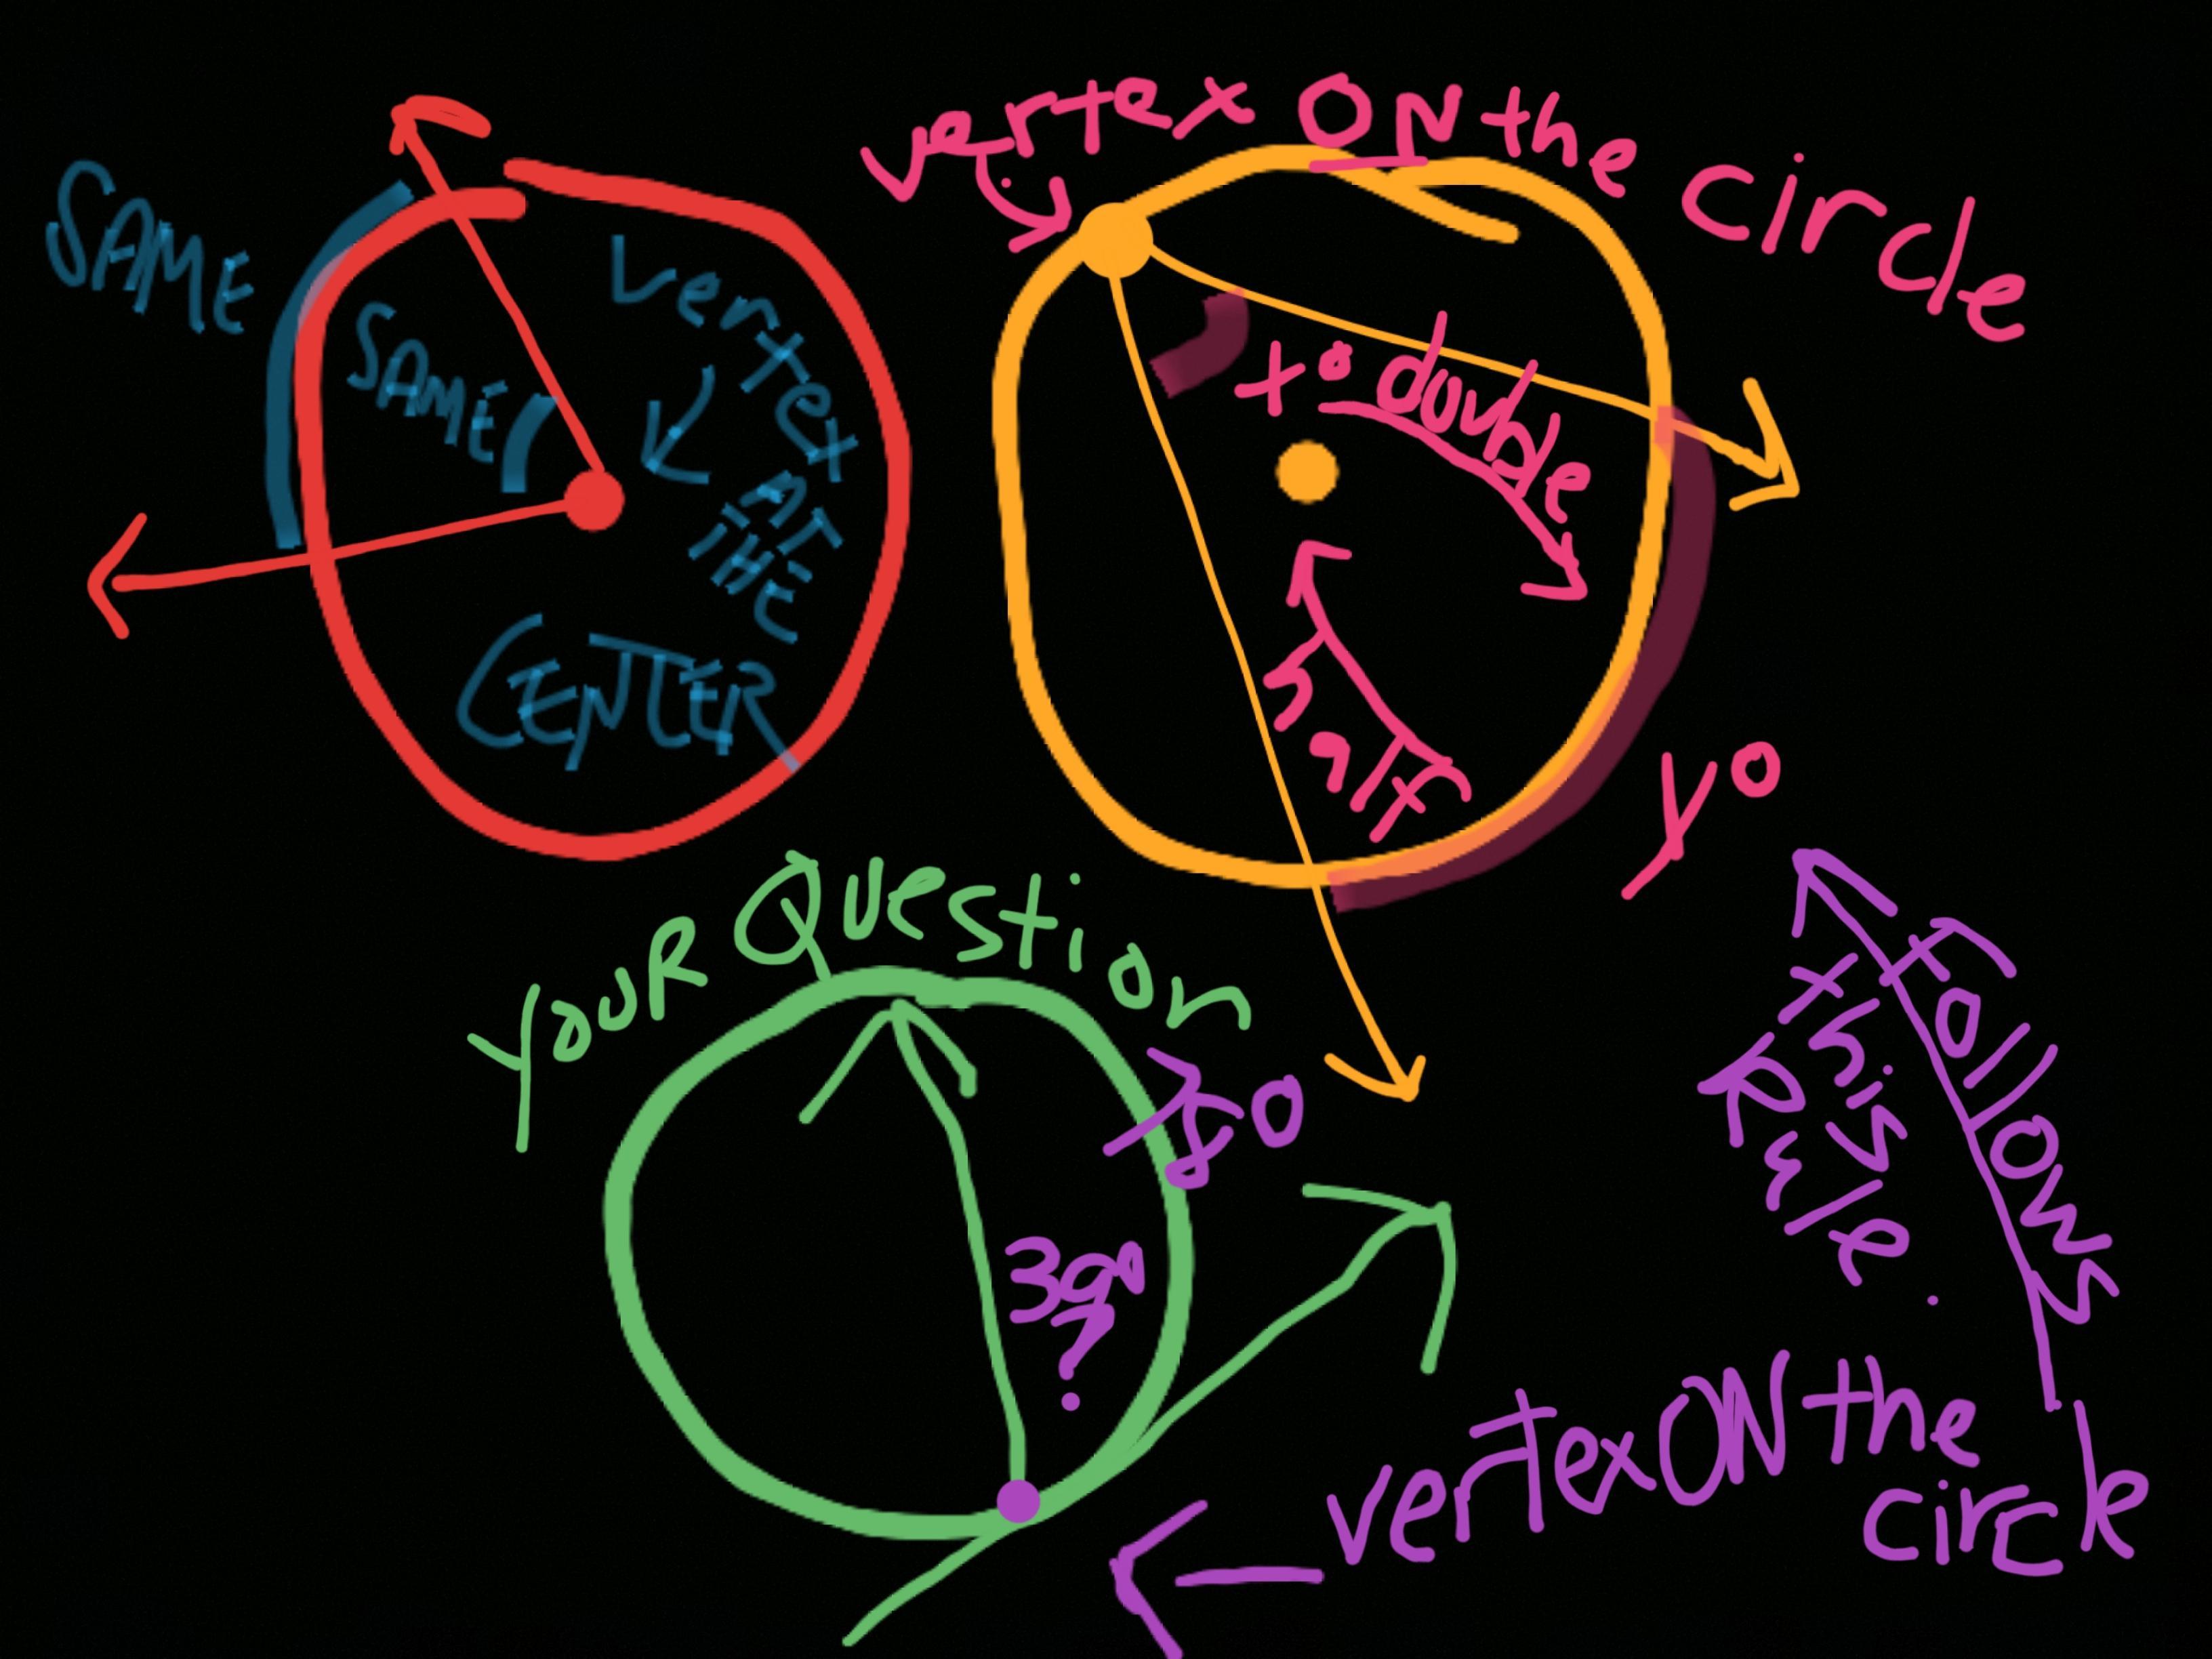 SAME
SAME
vertex
AT
THE
CENTER
vertex ON the circle
x° double
half
y°
YOUR QUESTION
78°
39°
?
Follows
this
Rule.
vertex ON the
circle